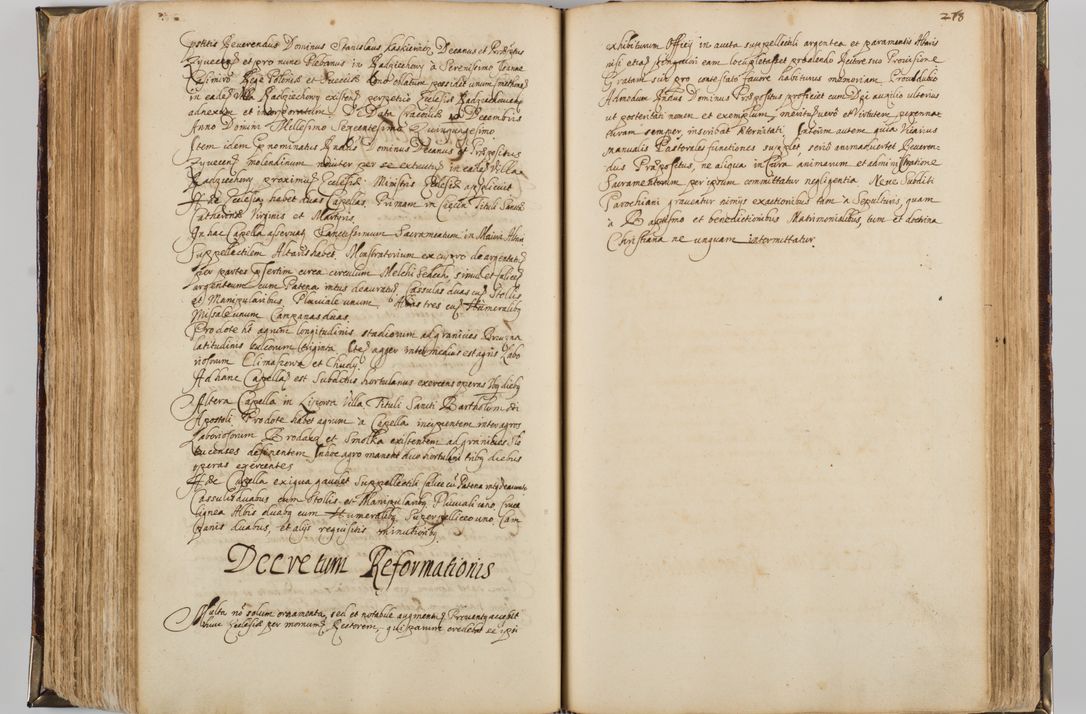 postitis Reverendus Dominus Stanislaus Kaskiewicz Decanus et Præpositus
Zyvecen et pro nunc Plebanus in Radziechowy à Serenissimo Joanne
Casimiro Rege Poloniæ et Sueciæ collatum possidet unum smethonē
in eadē Villa Radziechowy existen perpetio Ecclesiæ Radziechowien
adnexum et incorporatum. De Data Cracoviæ Decembris
Anno Domini Millesimo Sexcentesimo Quinquagesimo
Item idem prænominatus Rndus Dominus Decanus et Præpositus
Zyvecen molendinum noviter per se extructū in eadē Villa
Radziechowy proximū Ecclesiæ Ministris Ecclesiæ applicuit
Hæc Ecclesia habet duas Capellas Primam in Tituli Sanctæ
Catharinæ Virginis et Martyris.
In hac Capella asservat Sanctissimum Sacramentum in Maiori Altari
Suppellectilem Altaris habet Monstratorium ex cupro deargentatū
per partes præsertim circa circulum Melchisedech, simul et calicē
argenteum cum Patena intus deauratū Cassulas duas cū Stollis
et Manipularibus, Pluviale unum Albas tres cū Humeralibus
Missale unum Campanas duas.
Pro dote hē agrum longitudinis stadiorum ad granicies Bruzna
latitudinis sulcorum triginta agger intermedius est agris Labo
riosorum Climaszowa et Chudy.
Ad hanc Capellā est Subditus hortulanus exercens operas diebus
Altera Capella in Lipowa Villa Tituli Sancti Bartholomæi
Apostoli Pro dote habet agrum à Capella incipientem inter agros
Laboriosorum Brodaka et Smolka existentem ad granicies Slo
tvicenses desinentem In hoc agro manent duo hortulani tribus diebus
operas exercentes
Hæc Capella exigua gaudet Suppellectili calice cū Patena intus deaurata
Cassulis duabus cum Stollis et Manipularibus Pluviali uno cruce
lignea Albis duabus cum Humeralibus Superpelliceo uno Cam
panis duabus, et alijs requisitis minutioribus.
Decretum Reformationis
Multa nō solum ornamenta, sed et notabile augmentū Proventus accepit
hanc Ecclesiæ per modernū Rectorem, qui parum credebat se ipsi
278
exhibiturum Officij in aucta suppellectili argentea et paramentis Altaris
nisi etiā eam locupletasset probando Rectore suo Provisione
Gratam sui pro contestato favore habiturus memoriam Procul dubio
Admodum Rndus Dominus Præpositus proficiet cum Dei auxilio ulterius
ut posteritati nomen et exemplum, meritū verò et virtutem perennat
turam semper inscribat Æternitati. Interim autem quia Vicarius
Manualis Pastorales functiones supplet seriò animadvertet Reveren-
dus Præpositus, ne aliqua in Cura animarum et administratione
Sacramentorum per ipsum committatur negligentia Neve Subditi
Parochiani graventur nimijs exactionibus tam à Sepulturis, quam
à Baptismo et benedictionibus Matrimonialibus, tum et doctrina
Christiana ne unquam intermittatur.